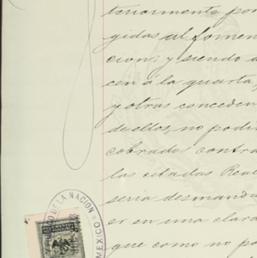 teriormente por
gidas al fomen
cion; y siendo a
cen á la quarta,
y otras conceden
de ellos, no podri
cobrada contra
las citadas Real
seria desmanda
er en una clara
que como no po
DE LA NACION
MEXICO